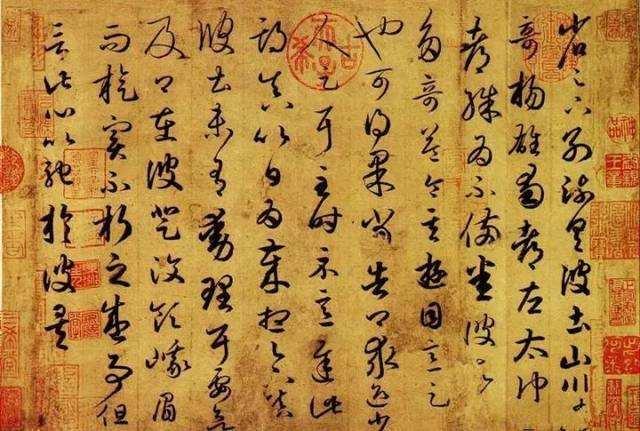 省足下別疏具彼土山川諸
奇揚雄蜀都左太沖
都殊為不備悉彼故
多奇益令其遊目意足
也可得果當告卿求迎少
人足耳至時示意遲此
期真以日為歲想足下鎮
彼土未有動理耳要欲
及卿在彼登汶領峨眉
而旋實不朽之盛事但
言此心以馳於彼矣
古希天子